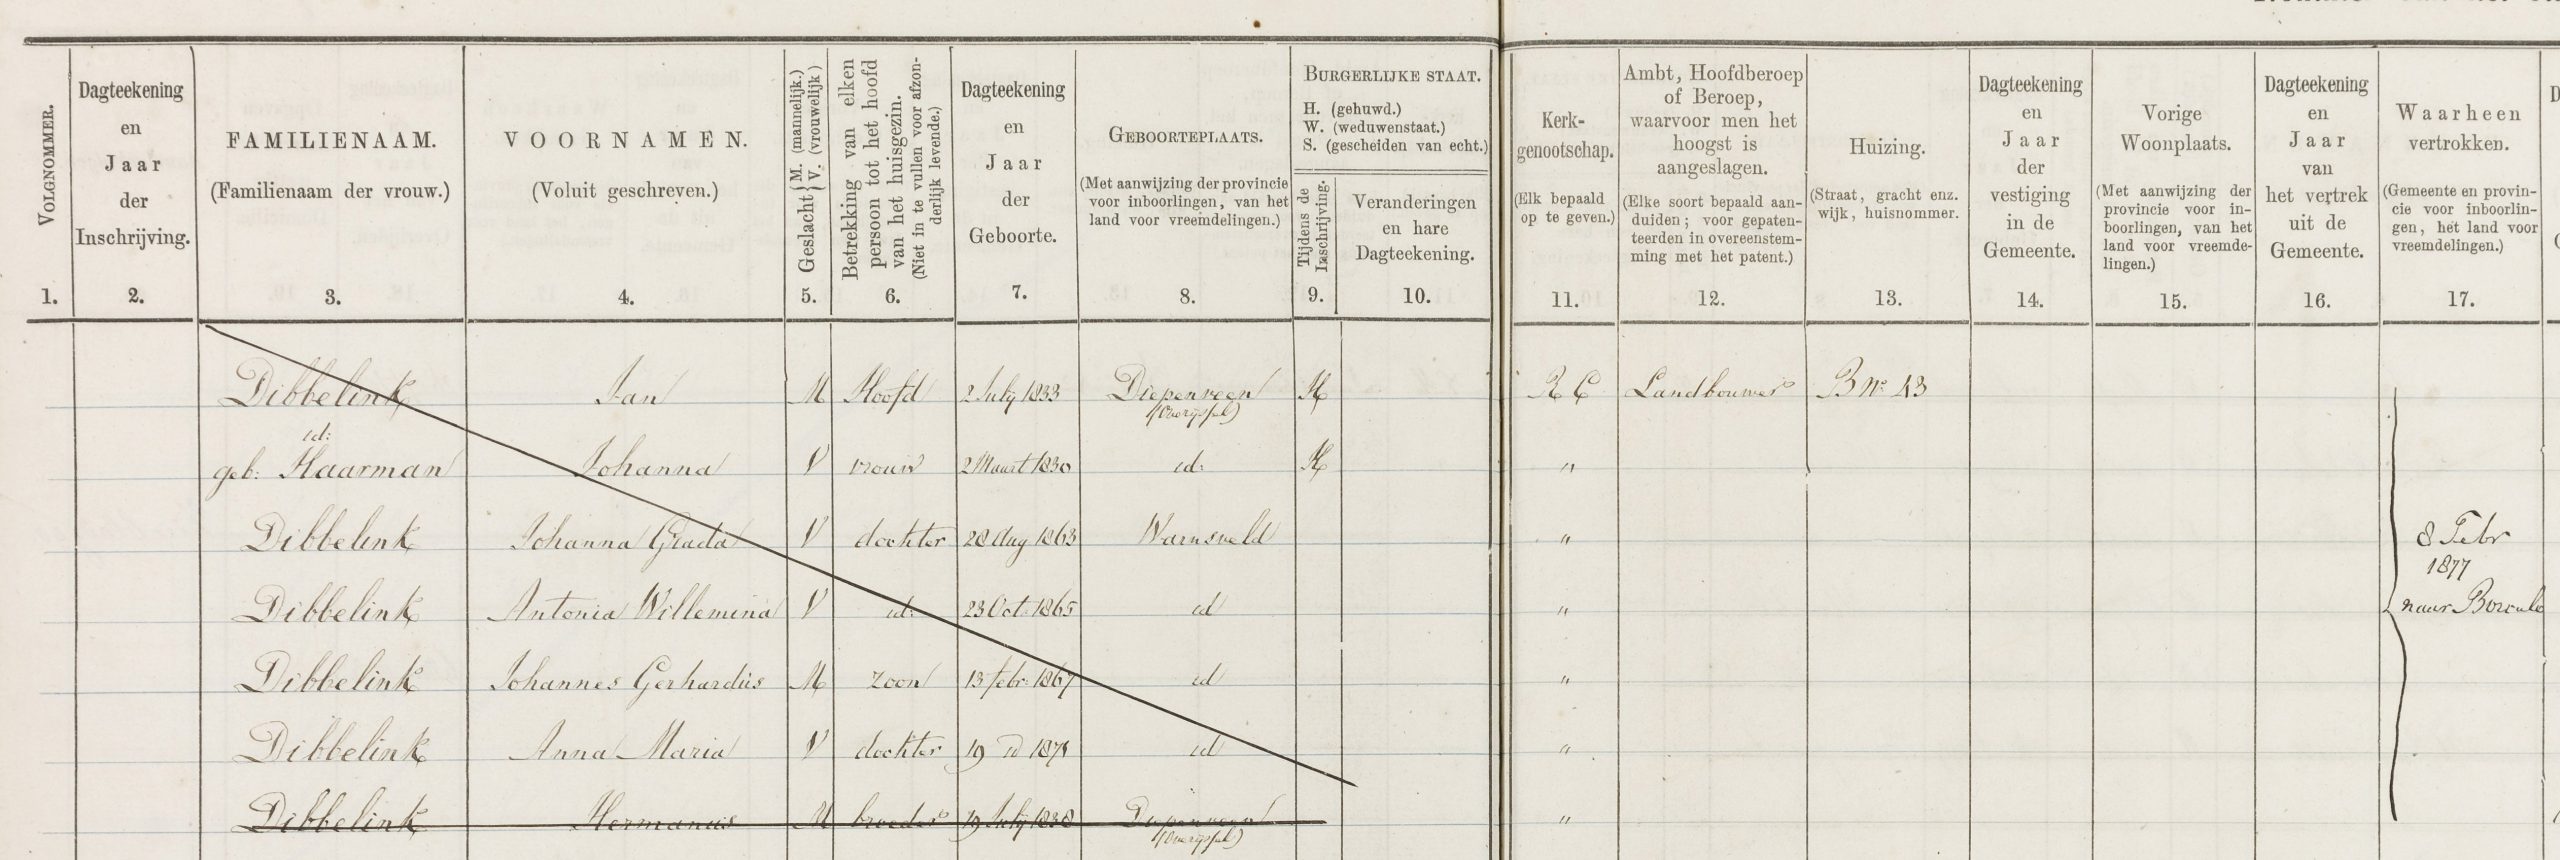 VOLGNOMMER.
1.
Dagteekening
en
Jaar
der
Inschrijving.
2.
FAMILIENAAM.
(Familienaam der vrouw.)
3.
VOORNAMEN.
(Voluit geschreven.)
4.
Geslacht { M. (mannelijk.) V. (vrouwelijk)
5.
Betrekking van elken
persoon tot het hoofd
van het huisgezin.
(Niet in te vullen voor afzon-
derlijk levende.)
6.
Dagteekening
en
Jaar
der
Geboorte.
7.
GEBOORTEPLAATS.
(Met aanwijzing der provincie
voor inboorlingen, van het
land voor vreemdelingen.)
8.
BURGERLIJKE STAAT.
H. (gehuwd.)
W. (weduwenstaat.)
S. (gescheiden van echt.)
Tijdens de
Inschrijving.
9.
Veranderingen
en hare
Dagteekening.
10.
Kerk-
genootschap.
(Elk bepaald
op te geven.)
11.
Ambt, Hoofdberoep
of Beroep,
waarvoor men het
hoogst is
aangeslagen.
(Elke soort bepaald aan-
duiden; voor gepaten-
teerden in overeenstem-
ming met het patent.)
12.
Huizing.
(Straat, gracht enz.
wijk, huisnommer.
13.
Dagteekening
en
Jaar
der
vestiging
in de
Gemeente.
14.
Vorige
Woonplaats.
(Met aanwijzing der
provincie voor in-
boorlingen, van het
land voor vreemde-
lingen.)
15.
Dagteekening
en
Jaar
van
het vertrek
uit de
Gemeente.
16.
Waarheen
vertrokken.
(Gemeente en provin-
cie voor inboorlin-
gen, het land voor
vreemdelingen.)
17.
Dibbelink Jan M Hoofd 2 July 1833 Diepenveen H R C Landbouwer B No 43
(Overijssel)
id:
geb: Haarman Johanna V vrouw 2 Maart 1830 id: H "
Dibbelink Johanna Grada V dochter 28 Aug 1863 Warnsveld "
8 Febr
1877
Dibbelink Antonia Willemina V id: 23 Oct. 1865 id " naar Borculo
Dibbelink Johannes Gerhardus M zoon 13 febr: 1867 id "
Dibbelink Anna Maria V dochter 19 id id "
Dibbelink Hermanus M broeder 19 July 1838 Diepenveen "
(Overijssel)